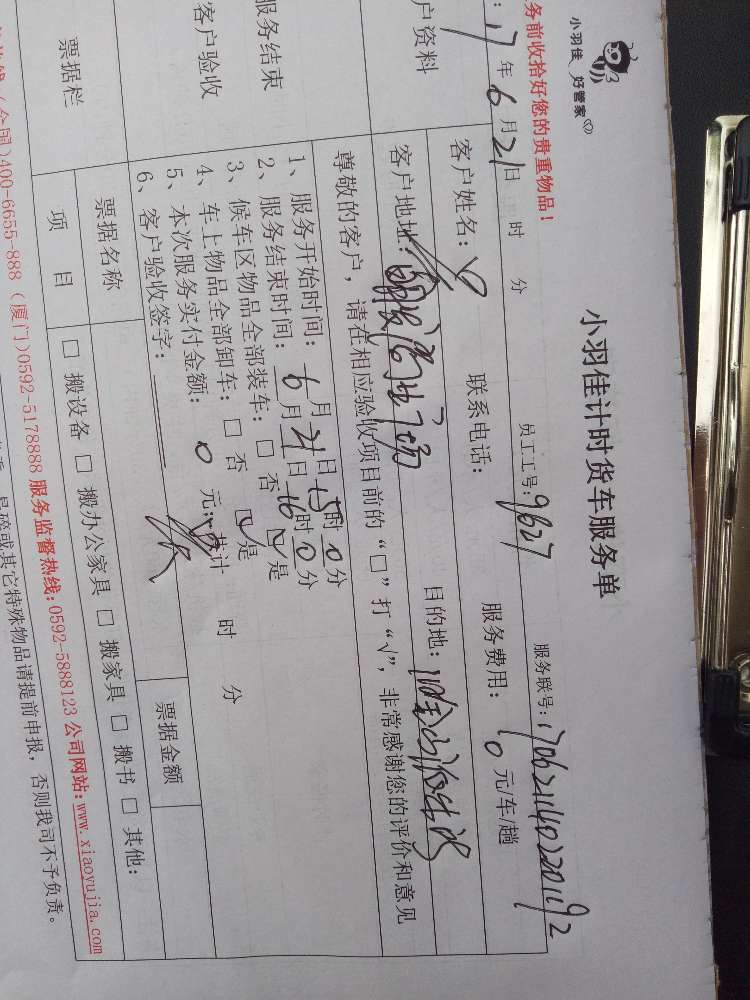 小羽佳 好管家
小羽佳计时货车服务单
务前收拾好您的贵重物品！
服务联号：
17年6月21日 时 分 员工工号：9627
户资料
客户姓名： 联系电话： 服务费用：0元/车/趟
客户地址： 目的地：
服务结束
客户验收
尊敬的客户，请在相应验收项目前的“□”打“√”，非常感谢您的评价和意见
1、服务开始时间：6月21日15时0分
2、服务结束时间：月21日16时0分
3、候车区物品全部装车：□ 否 ☑ 是
4、车上物品全部卸车：□ 否 ☑ 是
5、本次服务实付金额：0元；共计 时 分
6、客户验收签字：
票据栏
票据名称 票据金额
项 目 □ 搬设备 □ 搬办公家具 □ 搬家具 □ 搬书 □ 其他：
(全国)400-6655-888 (厦门)0592-5178888 服务监督热线：0592-5888123 公司网站：www.xiaoyujia.com
易碎或其它特殊物品请提前申报，否则我司不予负责。